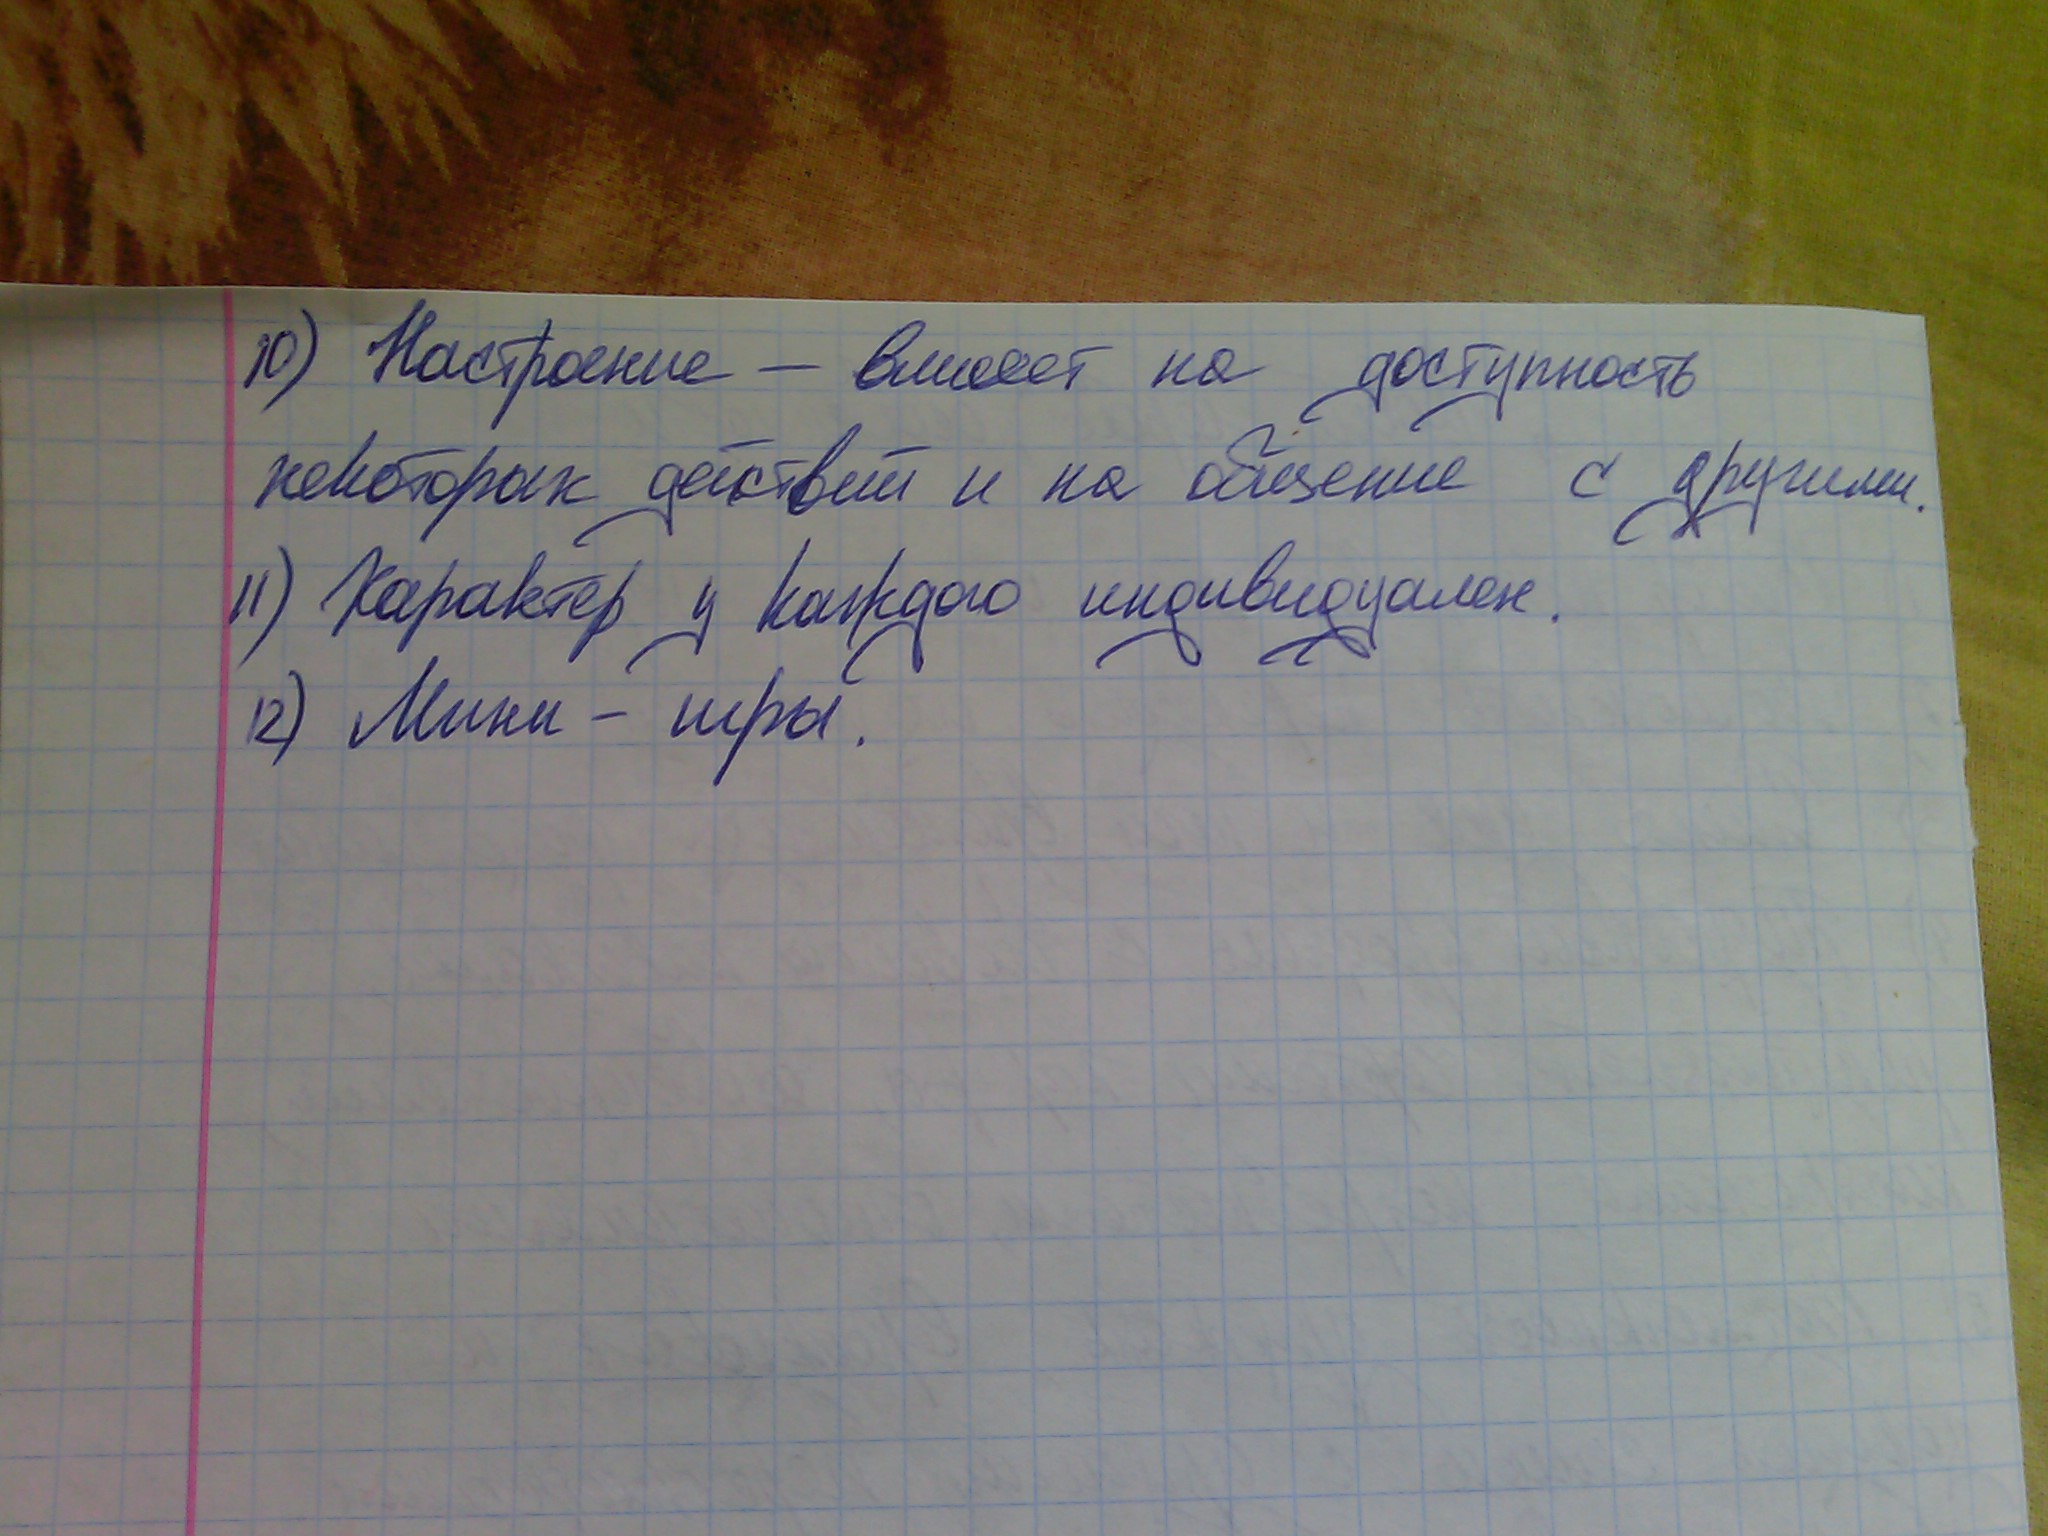 10) Настроение — влияет на доступность
некоторых действий и на общение с другими.
11) Характер у каждого индивидуален.
12) Мини - игры.